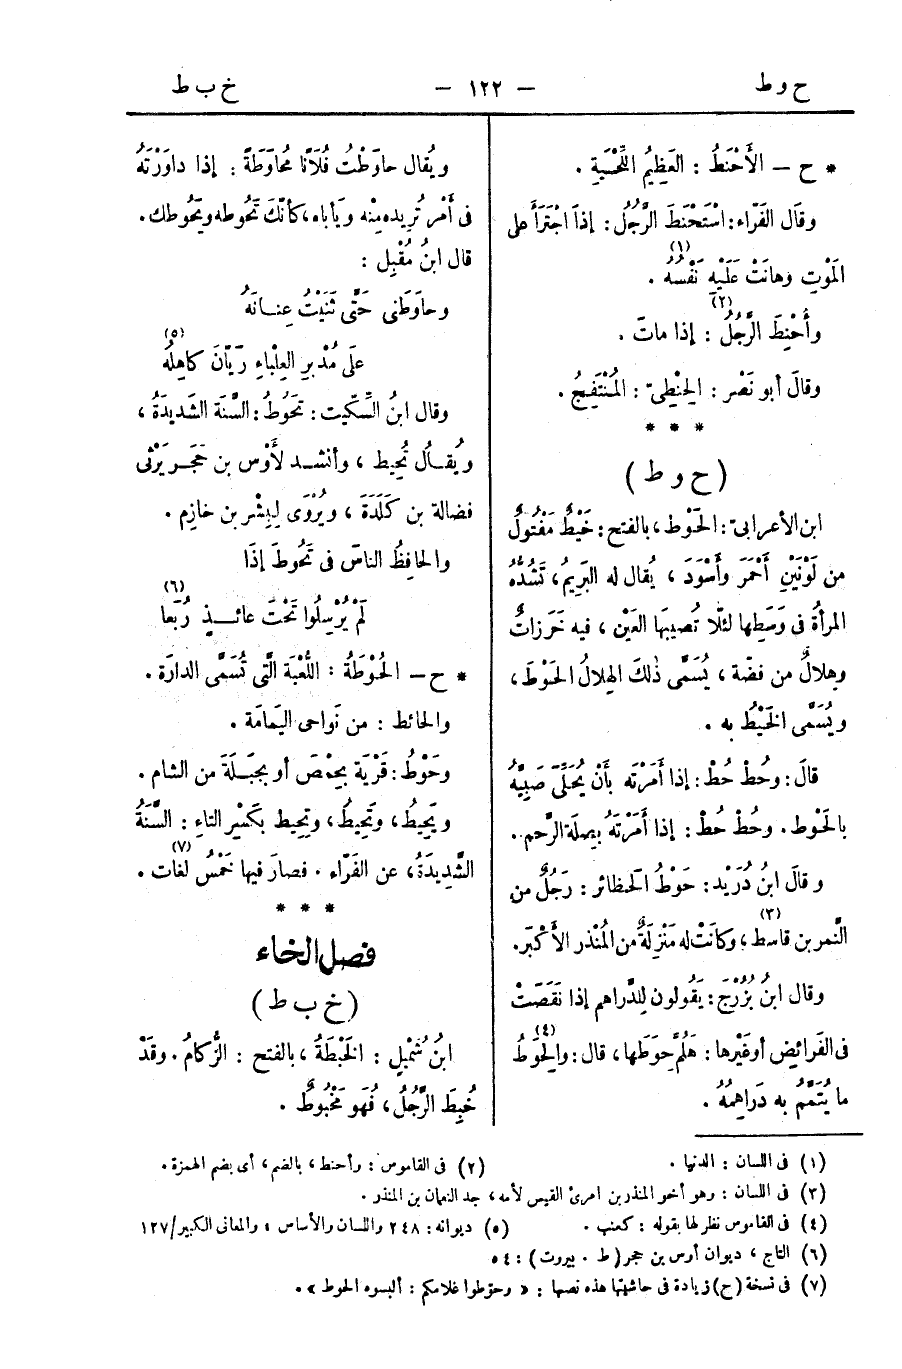 ح و ط
— ١٢٢ —
خ ب ط
* ح — الأَحْنَطُ : العَظِيمُ اللِّحْيَةِ .
وقَال الفَرّاء: اسْتَحْنَطَ الرَّجُلُ: إذَا اجْتَرَأَ على
المَوْتِ وهانَتْ عَلَيْهِ نَفْسُهُ (١) .
وأُحْنِطَ الرَّجُلُ (٢) : إذا ماتَ .
وقالَ أبو نَصْر : الحِنْطِىّ : المُنْتَفِجُ .
* * *
( ح و ط )
ابن الأعرابىّ: الحَوْط ، بالفتح: خَيْطٌ مَفْتُولٌ
من لَوْنَيْنِ أَحْمَرَ وأَسْوَدَ ، يُقال له البَرِيمُ، تَشُدُّه
المرأةُ فى وَسَطِها لئلّا تُصيبَها العَيْن ، فيه خَرَزاتٌ
وهِلالٌ من فضّة ، يُسَمَّى ذٰلك الهِلالُ الحَوْطَ ،
ويُسَمَّى الخَيْطُ به .
قالَ: وحُطْ حُطْ: إذا أَمَرْتَه بأَنْ يُحَلِّىَ صَبِيَّهُ
بالحَوْط. وحُطْ حُطْ: إذا أَمَرْتَهُ بِصِلَةِ الرَّحِم .
وقالَ ابنُ دُرَيْد: حَوْطُ الحَظائر: رَجُلٌ من
النَّمر بن قاسط (٣)؛ وكانَتْ له مَنْزِلَةٌ من المُنْذر الأَكْبَر.
وقال ابنُ بُزُرْجَ: يَقُولون لِلدَّراهم إذا نَقَصَتْ
فى الفَرائِضِ أو غَيْرِها: هَلُمَّ حِوَطَها، قال: والحِوَطُ (٤)
ما يُتَمَّمُ به دَراهِمُهُ .
ويُقال حاوَطْتُ فُلَانًا مُحَاوَطَةً : إذا داوَرْتَهُ
فى أَمْرٍ تُريده مِنْه ويَأباه ، كأَنَّكَ تَحُوطه ويَحُوطك.
قال ابنُ مُقْبِل :
وحاوَطَنى حَتَّى ثَنَيْتُ عِنانَهُ
على مُدْبِرِ العِلْباءِ رَيّانَ كاهِلُه (٥)
وقال ابنُ السِّكّيت: تَحُوطُ: السَّنَة الشَّديدَةُ ،
ويُقالُ تُحِيط ، وأنشد لأَوْس بن حَجَر يَرْثى
فضالة بن كَلَدَةَ ، ويُرْوَى لِبِشْر بن خازِم .
والحافِظُ الناسَ فى تَحُوطَ إذَا
لَمْ يُرْسِلُوا تَحْتَ عائِذٍ رُبَعَا (٦)
* ح — الحُوْطَةُ : اللُّعْبَة الَّتى تُسَمَّى الدارَة .
والحائط : من نَواحِى اليَمامَة .
وحَوْطُ: قَرْيَة بِحِمْصَ أو بجَبَلَةَ من الشام .
ويَحِيطُ، وتَحِيطُ، وتِحِيط بكَسْرِ التاءِ : السَّنَةُ
الشَّدِيدَةُ، عن الفَرّاء . فصارَ فيها خَمْسُ لُغات (٧) .
* * *
فصل الخاء
( خ ب ط )
ابنُ شُمَيْلٍ : الخَبْطَةُ ، بالفتح : الزُّكامُ . وقَدْ
خُبِطَ الرَّجُلُ ، فهُو مَخْبُوطٌ .
(١) فى اللسان : الدنيا .
(٢) فى القاموس : وأحنط ، بالضم ، أى بضم الهمزة .
(٣) فى اللسان : وهو أخو المنذر بن امرئ القيس لأمه ، جد النعمان بن المنذر .
(٤) فى القاموس نظر لها بقوله : كعنب .
(٥) ديوانه : ٢٤٨ واللسان والأساس ، والمعانى الكبير/١٢٧
(٦) التاج ، ديوان أوس بن حجر ( ط . بيروت ) : ٥٤
(٧) فى نسخة (ح) زيادة فى حاشيتها هذه نصها : « وحوّطوا غلامكم : ألبسوه الحوط » .